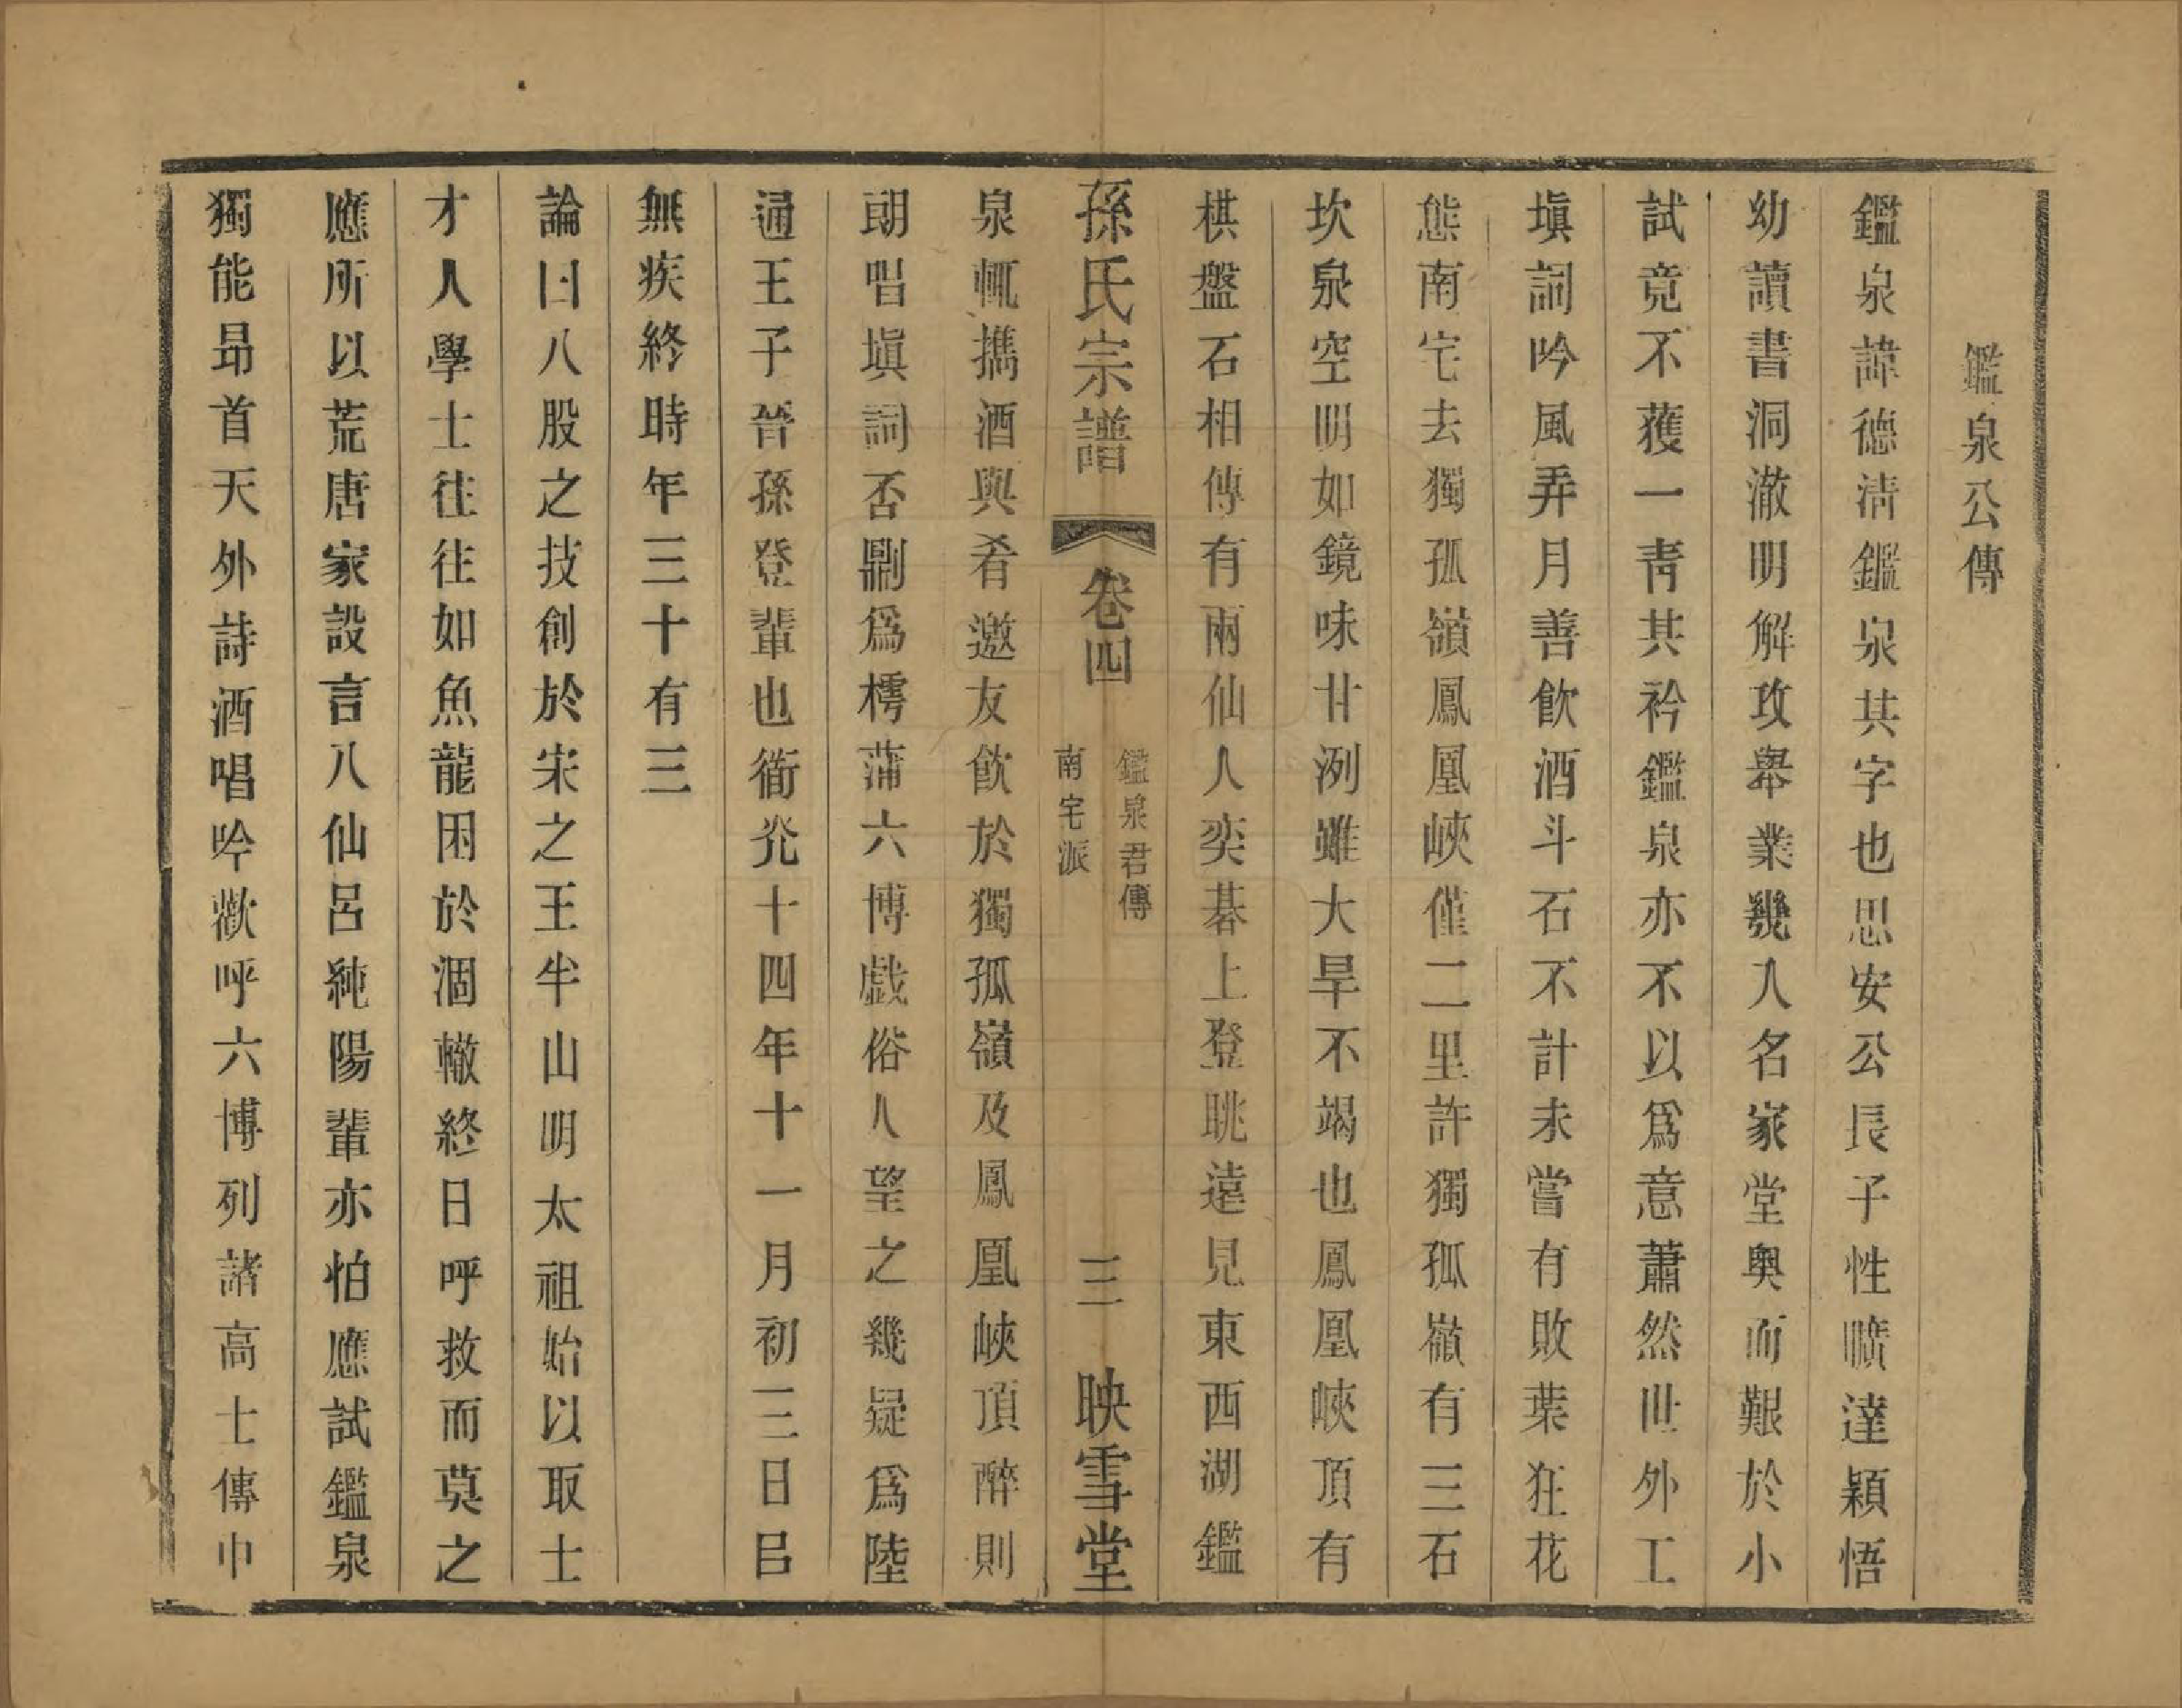 鑑泉公傳
鑑泉諱德淸鑑泉其字也思安公長子性曠達穎悟
幼讀書洞澈明解攻舉業幾入名家堂奧而艱於小
試竟不獲一靑其衿鑑泉亦不以爲意蕭然世外工
塡詞吟風弄月善飮酒斗石不計未嘗有敗葉狂花
態南宅去獨孤嶺鳳凰峽僅二里許獨孤嶺有三石
坎泉空明如鏡味甘洌雖大旱不竭也鳳凰峽頂有
棋盤石相傳有兩仙人奕碁上登眺遠見東西湖鑑
孫氏宗譜 卷四 鑑泉君傳 南宅派 三 映雪堂
泉輒攜酒與肴邀友飮於獨孤嶺及鳳凰峽頂醉則
朗唱塡詞否則爲樗蒲六博戲俗人望之幾疑爲陸
通王子晉孫登輩也衜光十四年十一月初三日㠯
無疾終時年三十有三
論曰八股之技創於宋之王半山明太祖始以取士
才人學士往往如魚龍困於涸轍終日呼救而莫之
應所以荒唐家設言八仙呂純陽輩亦怕應試鑑泉
獨能昂首天外詩酒唱吟歡呼六博列諸高士傳中